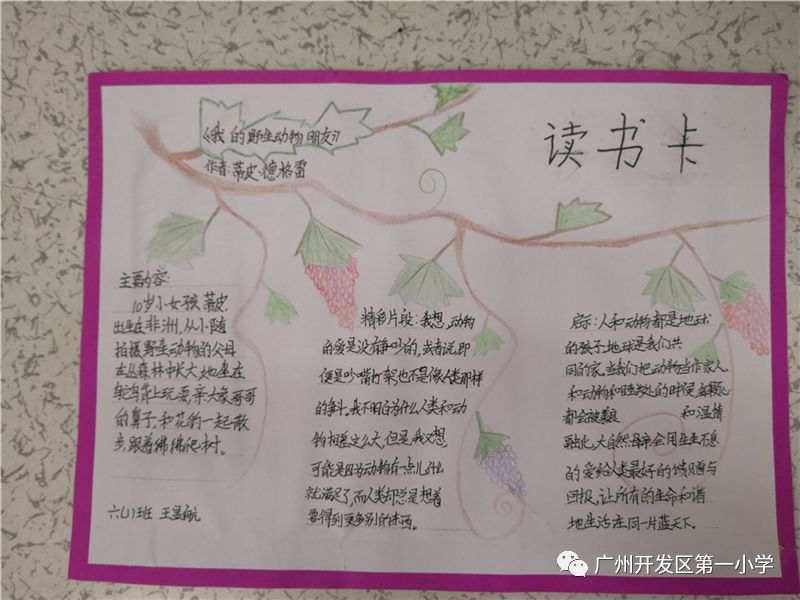 《我的野生动物朋友》
作者:蒂皮·德格雷
读书卡
主要内容:
10岁小女孩蒂皮
出生在非洲,从小随
拍摄野生动物的父母
在丛森林中长大,她坐在
鸵鸟背上玩耍,亲大象哥哥
的鼻子,和花豹一起散
步,跟着狒狒爬树。
六(1)班 王昱航
精彩片段:我想,动物
的爱是没有争吵的,或者说,即
便是吵嘴打架,也不是像人类那样
的争斗。我不明白为什么人类和动
物相差这么大,但是,我又想,
可能是因为动物有一点儿什么
就满足了,而人类却总是想着
要得到更多别的东西。
启示:人和动物都是地球
的孩子,地球是我们共
同的家。当我们把动物当作家人
和动物和睦相处的时候,每颗心
都会被 和温情
融化。大自然母亲会用生生不息
的爱给人类最好的馈赠与
回报,让所有的生命和谐
地生活在同一片蓝天下。
广州开发区第一小学